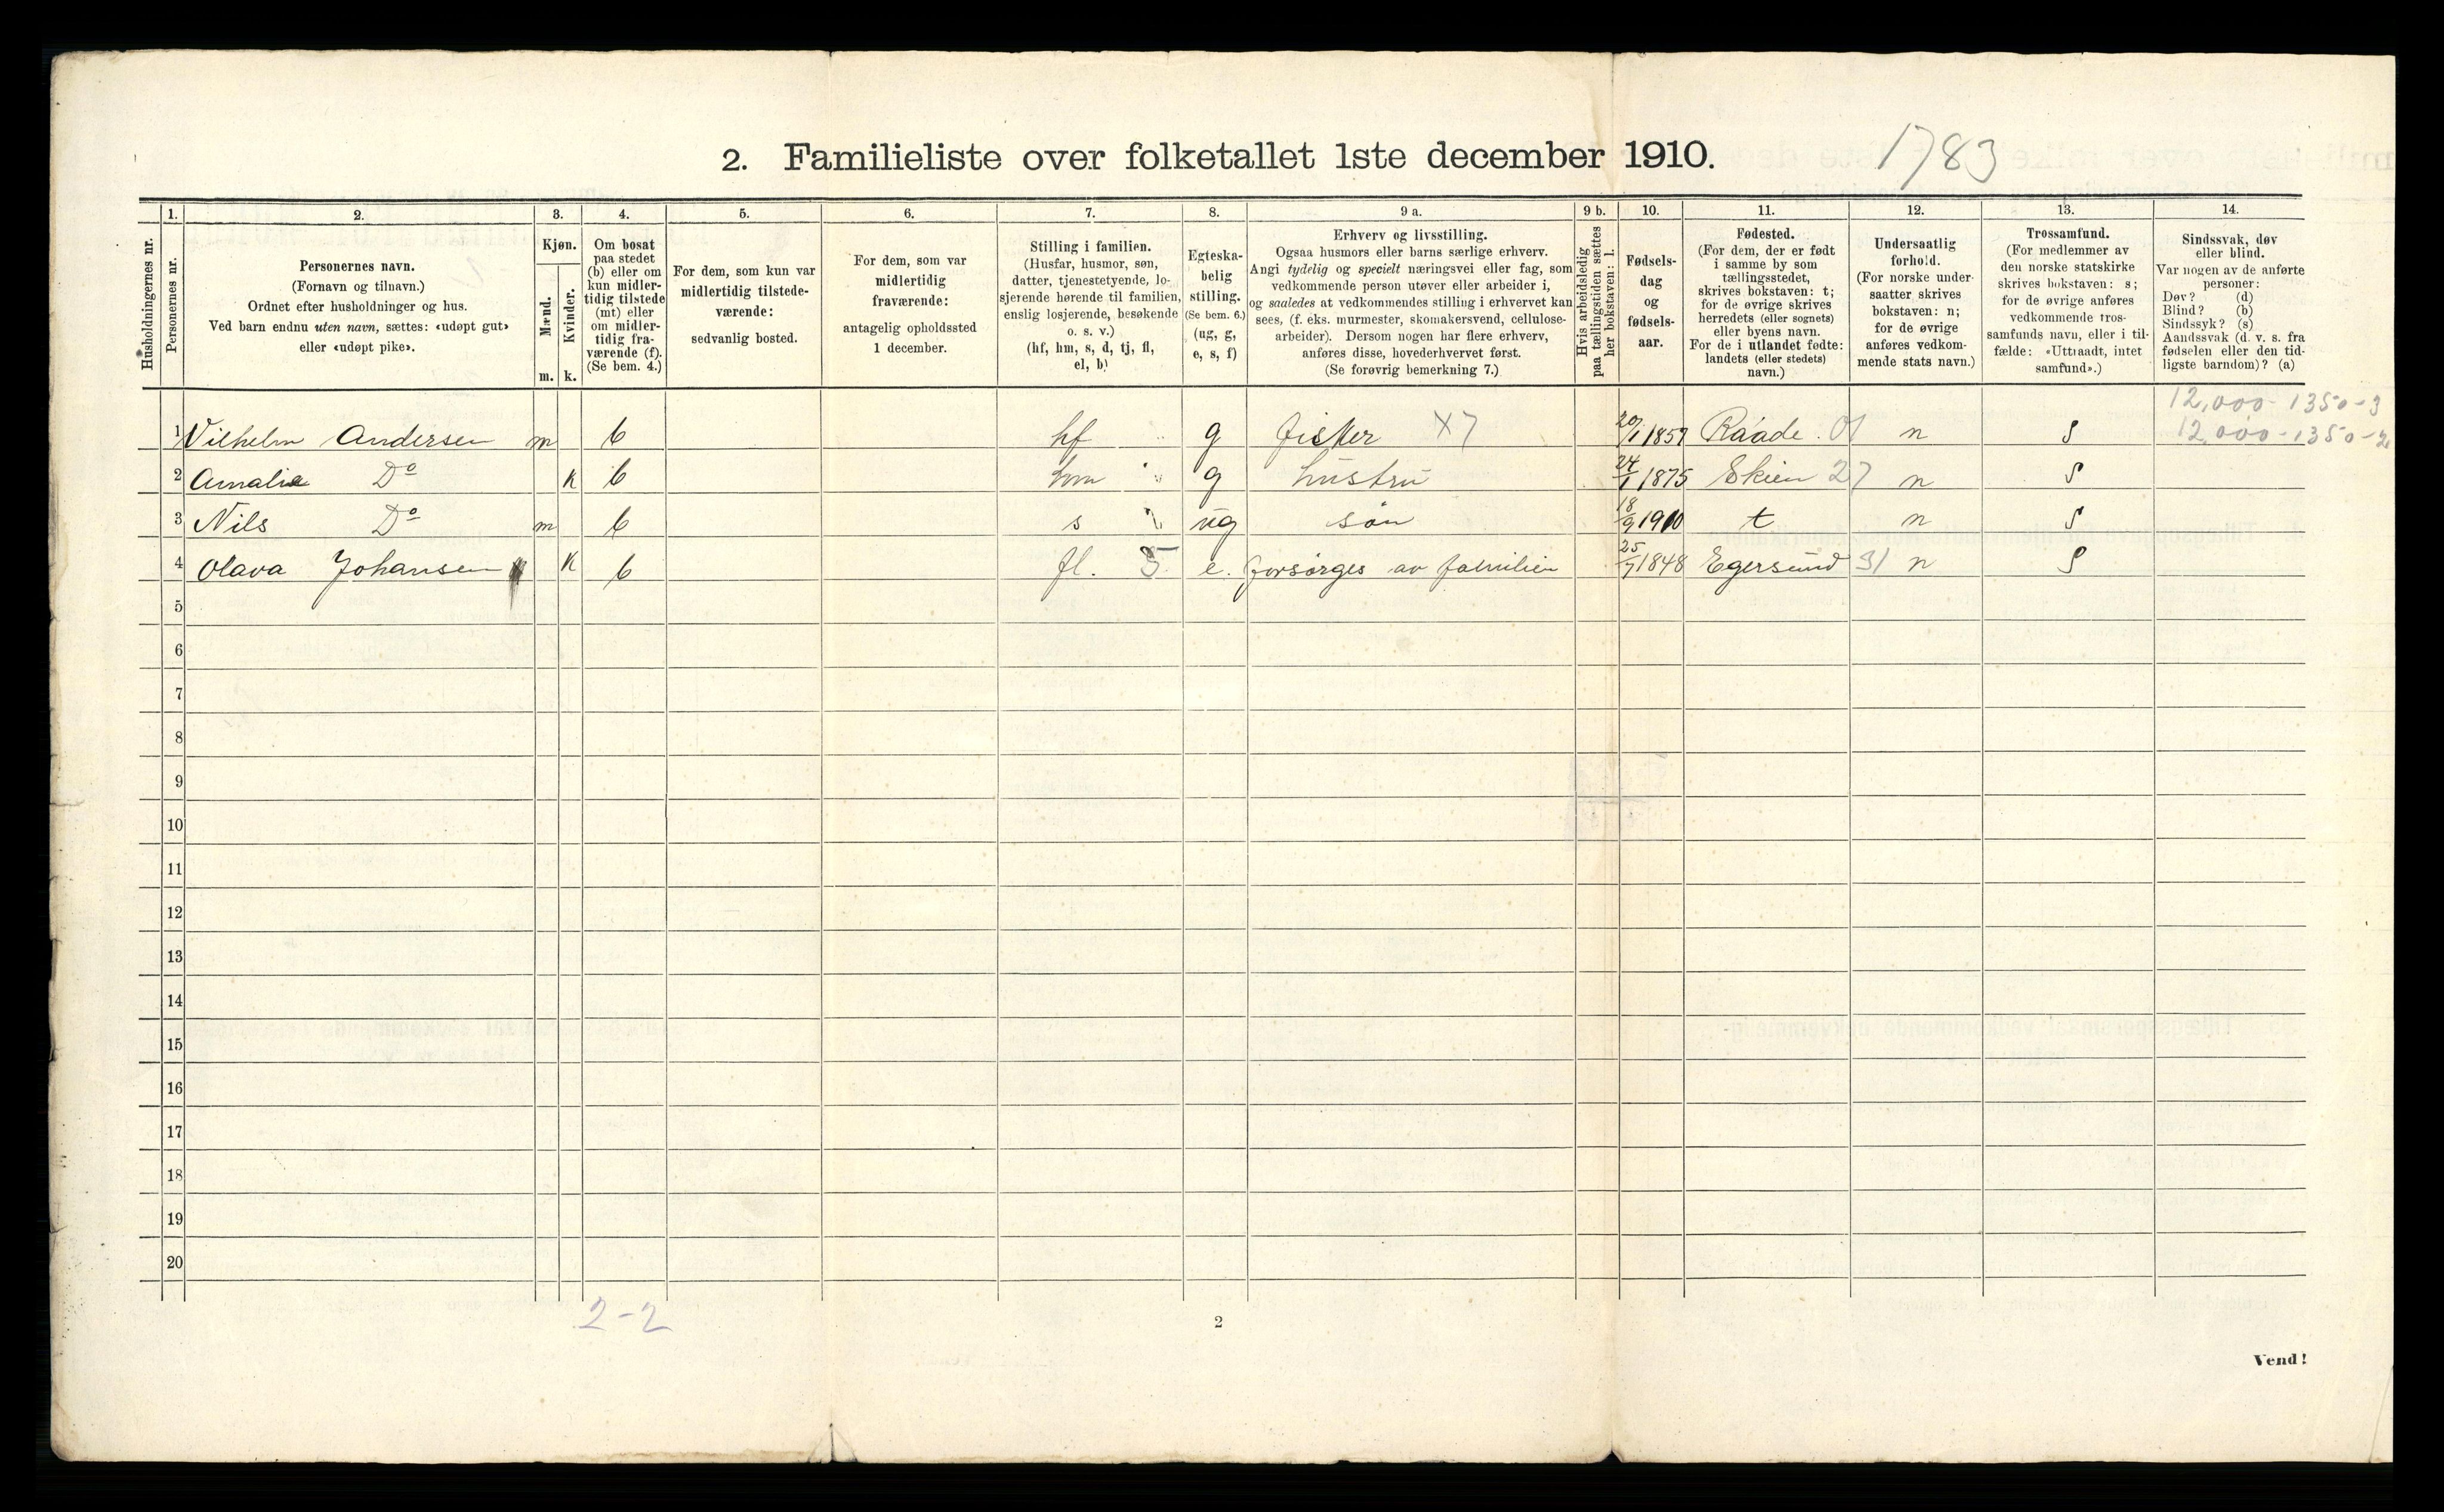 2. Familieliste over folketallet 1ste december 1910. 1783
Husholdningernes nr.
1. Personernes nr.
2. Personernes navn.
(Fornavn og tilnavn.)
Ordnet efter husholdninger og hus.
Ved barn endnu uten navn, sættes: «udøpt gut»
eller «udøpt pike».
3. Kjøn.
Mænd. m.
Kvinder. k.
4. Om bosat
paa stedet
(b) eller om
kun midler-
tidig tilstede
(mt) eller
om midler-
tidig fra-
værende (f).
(Se bem. 4.)
5. For dem, som kun var
midlertidig tilstede-
værende:
sedvanlig bosted.
6. For dem, som var
midlertidig
fraværende:
antagelig opholdssted
1 december.
7. Stilling i familien.
(Husfar, husmor, søn,
datter, tjenestetyende, lo-
sjerende hørende til familien,
enslig losjerende, besøkende
o. s. v.)
(hf, hm, s, d, tj, fl,
el, b)
8. Egteska-
belig
stilling.
(Se bem. 6.)
(ug, g,
e, s, f)
9 a. Erhverv og livsstilling.
Ogsaa husmors eller barns særlige erhverv.
Angi tydelig og specielt næringsvei eller fag, som
vedkommende person utøver eller arbeider i,
og saaledes at vedkommendes stilling i erhvervet kan
sees, (f. eks. murmester, skomakersvend, cellulose-
arbeider). Dersom nogen har flere erhverv,
anføres disse, hovederhvervet først.
(Se forøvrig bemerkning 7.)
9 b. Hvis arbeidsledig
paa tællingstiden sættes
her bokstaven: l.
10. Fødsels-
dag
og
fødsels-
aar.
11. Fødested.
(For dem, der er født
i samme by som
tællingsstedet,
skrives bokstaven: t;
for de øvrige skrives
herredets (eller sognets)
eller byens navn.
For de i utlandet fødte:
landets (eller stedets)
navn.)
12. Undersaatlig
forhold.
(For norske under-
saatter skrives
bokstaven: n;
for de øvrige
anføres vedkom-
mende stats navn.)
13. Trossamfund.
(For medlemmer av
den norske statskirke
skrives bokstaven: s;
for de øvrige anføres
vedkommende tros-
samfunds navn, eller i til-
fælde: «Uttraadt, intet
samfund».)
14. Sindssvak, døv
eller blind.
Var nogen av de anførte
personer:
Døv? (d)
Blind? (b)
Sindssyk? (s)
Aandssvak (d. v. s. fra
fødselen eller den tid-
ligste barndom)? (a)
12,000-1350-3
1 Vilhelm Andersen m b hf g fisker X7 20/1 1857 Raade. 01 n s 12,000-1350-2
2 Amalie Do k b hm g hustru 24/1 1875 Skien 27 n s
3 Nils Do m b s ug søn 18/9 1910 t n s
4 Olava Johansen k b fl. 5 e. forsørges av familien 25/7 1848 Egersund 31 n s
5
6
7
8
9
10
11
12
13
14
15
16
17
18
19
20
2-2
2
Vend!